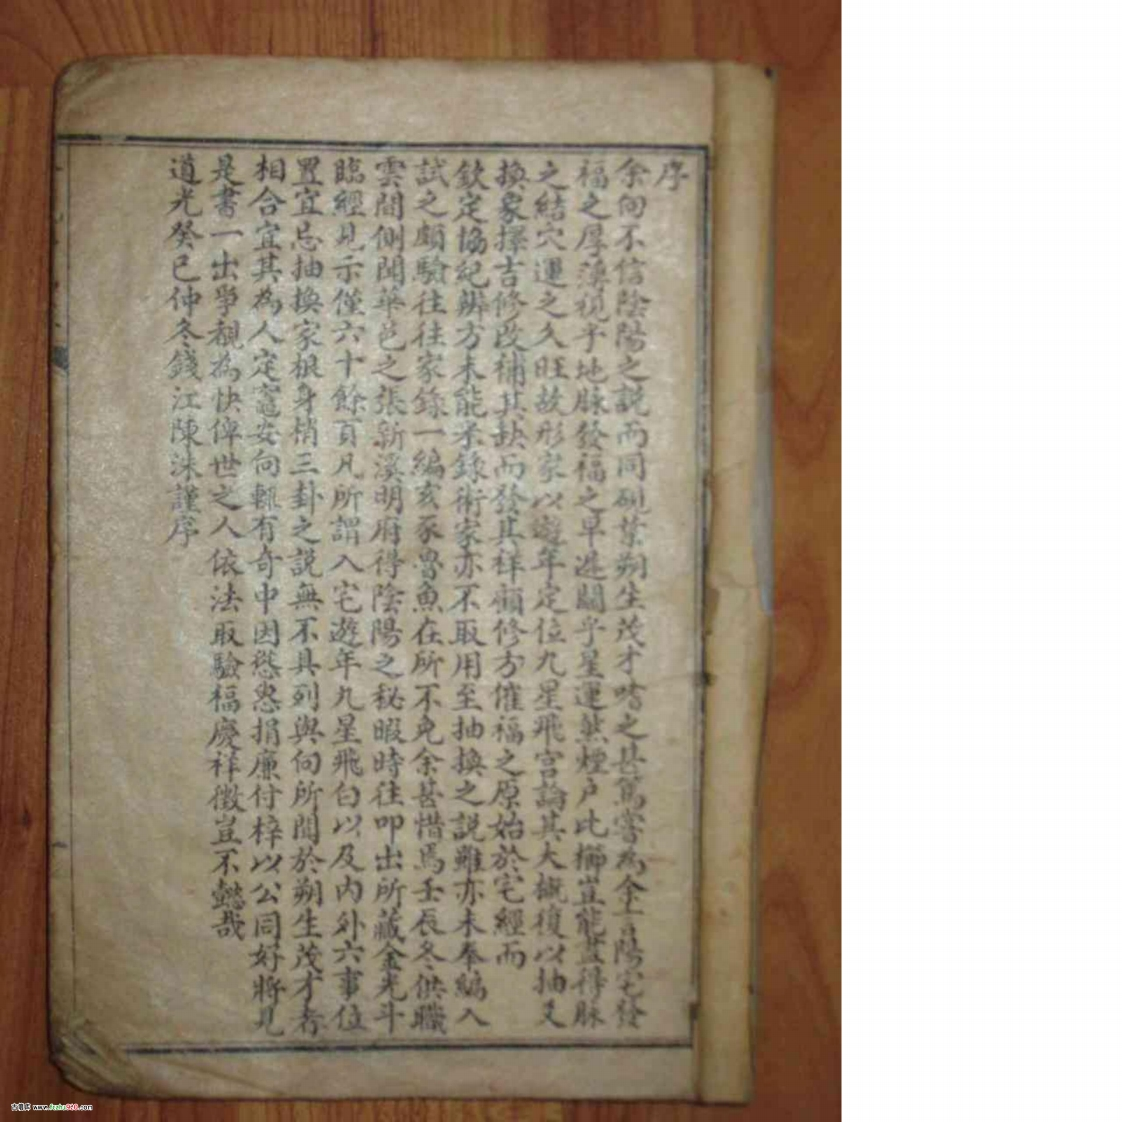 序
余向不信陰陽之說而同硯葉朔生茂才嗜之甚篤嘗為余言陽宅發
福之厚薄視乎地脉發福之早遲關乎星運然煙戶此櫛豈能盡得脉
之結穴運之久旺故形家以遊年定位九星飛宮論其大概復以抽爻
換象擇吉修改補其缺而發其祥顧修方催福之原始於宅經而
欽定協紀辨方未能采錄術家亦不取用至抽換之說雖亦未奉編入
試之頗驗往往家錄一編亥豕魯魚在所不免余甚惜焉壬辰冬供職
雲間側聞華邑之張新溪明府得陰陽之秘暇時往叩出所藏金光斗
臨經見示僅六十餘頁凡所謂入宅遊年九星飛白以及內外六事位
置宜忌抽換家根身梢三卦之說無不具列與向所聞於朔生茂才者
相合宜其為人定竈安向輒有奇中因慫恿捐廉付梓以公同好將見
是書一出爭覩為快俾世之人依法取驗福慶祥徵豈不懿哉
道光癸巳仲冬錢江陳洙謹序